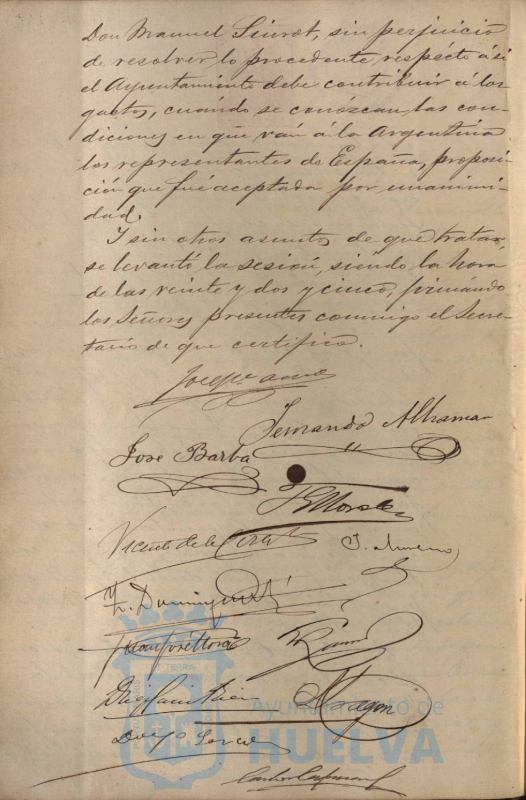 Don Manuel Siurot, sin perjuicio
de resolver lo procedente respécto á si
el Ayuntamiento debe contribuir á los
gastos, cuándo se conózcan las con-
diciones en que ván á la Argentina
los representantes de España, proposi-
ción que fué aceptada por unanimi-
dad.
Y sin otros asuntos de que tratar,
se levantó la sesión, siéndo la hora
de las veinte y dos y cinco, firmándo
los Señores presentes conmigo el Secre-
tario de que certifico.
Fernando Alhama
Jose Barba
Vicente de la
J. Moreno
Juan José
Aragon
Diego
Ayuntamiento de
HUELVA